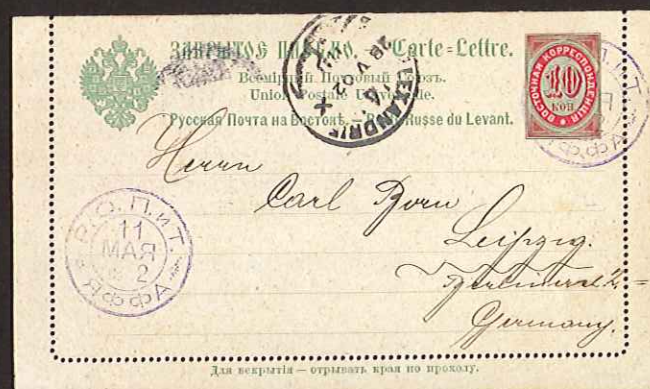 ЗАКРЫТОЕ ПИСЬМО. — Carte=Lettre.
Всемірный Почтовый Союзъ.
Union Postale Universelle.
Русская Почта на Востокѣ. — Poste Russe du Levant.
ВОСТОЧНАЯ КОРРЕСПОНДЕНЦІЯ
10
КОП
ALEXANDRIE
28 V 02
Herrn
Carl Born
Leipzig.
Germany.
Р.О.П.иТ.
11
МАЯ
2
ЯФФА
П.иТ.
ЯФФА
Для вскрытія — отрывать края по проколу.